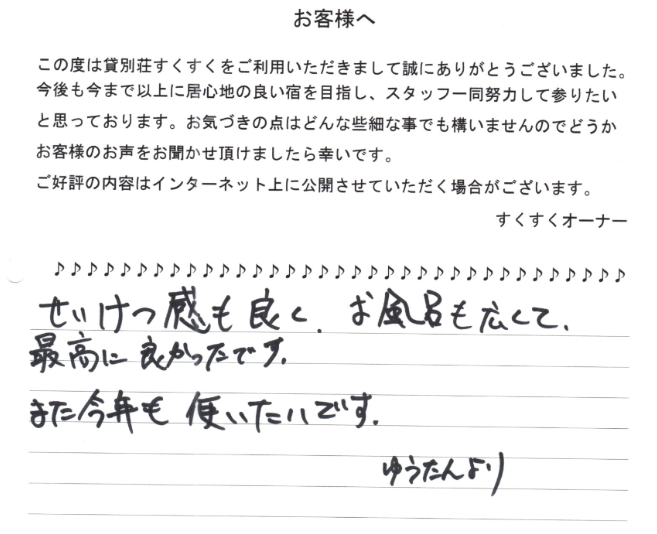 お客様へ
この度は貸別荘すくすくをご利用いただきまして誠にありがとうございました。
今後も今まで以上に居心地の良い宿を目指し、スタッフ一同努力して参りたい
と思っております。お気づきの点はどんな些細な事でも構いませんのでどうか
お客様のお声をお聞かせ頂けましたら幸いです。
ご好評の内容はインターネット上に公開させていただく場合がございます。
すくすくオーナー
♪♪♪♪♪♪♪♪♪♪♪♪♪♪♪♪♪♪♪♪♪♪♪♪♪♪♪♪♪♪♪♪♪♪♪
せいけつ感も良く、お風呂も広くて、
最高に良かったです。
また今年も使いたいです。
ゆうたんより